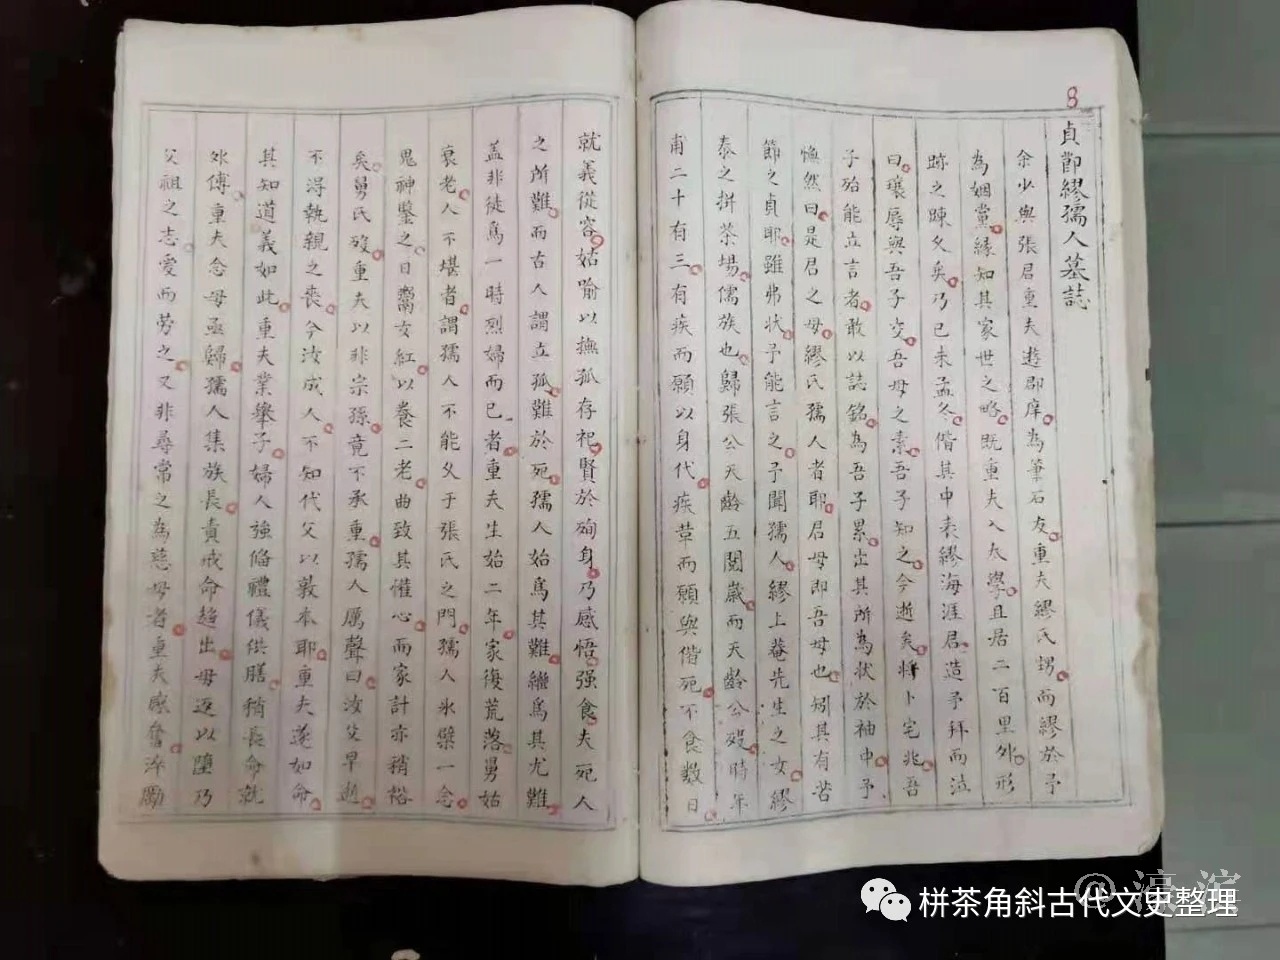 8
貞節繆孺人墓誌
余少與張君重夫遊郡庠為筆石友重夫繆氏甥而繆於予
為姻黨緣知其家世之略既重夫入太學且居二百里外形
跡之踈久矣乃己未孟冬偕其中表繆海涯君造予拜而泣
曰瓌辱與吾子交吾母之素吾子知之今逝矣將卜宅兆吾
子殆能立言者敢以誌銘為吾子累出其所為狀於袖中予
憮然曰是君之母繆氏孺人者耶君母即吾母也矧其有苦
節之貞耶雖弗狀予能言之予聞孺人繆上菴先生之女繆
泰之拼茶場儒族也歸張公天齡五閱歲而天齡公歿時年
甫二十有三有疾而願以身代疾革而願與偕死不食数日
就義從容姑喻以撫孤存祀賢於殉身乃感悟强食夫死人
之所難而古人謂立孤難於死孺人始為其難繼為其尤難
盖非徒為一時烈婦而已者重夫生始二年家復荒落舅姑
衰老人不堪者謂孺人不能久于張氏之門孺人氷檗一念
鬼神鑒之日鬻女紅以養二老曲致其懽心而家計亦稍裕
矣舅氏歿重夫以非宗孫竟不承重孺人厲聲曰汝父早逝
不得執親之喪今汝成人不知代父以敦本耶重夫遂如命
其知道義如此重夫業舉子婦人強脩禮儀供膳稍長命就
外傅重夫念母亟歸孺人集族長責戒命趨出毋返以墮乃
父祖之志愛而勞之又非尋常之為慈母者重夫感奮淬勵
@濠滨
栟茶角斜古代文史整理